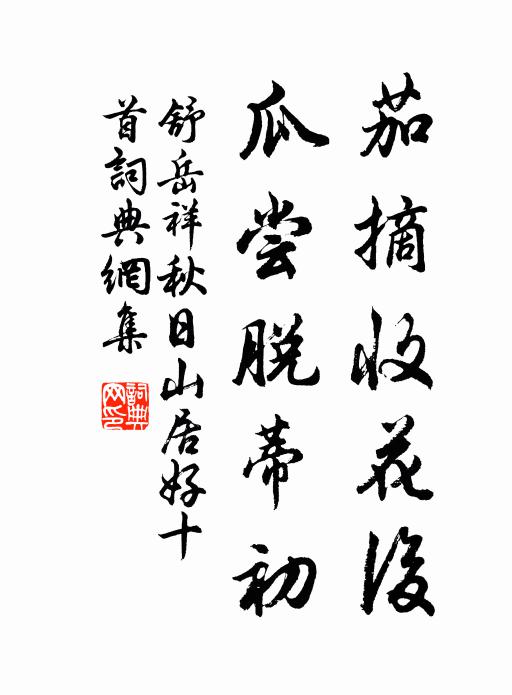 茄摘收花後
瓜尝脱蒂初
舒岳祥秋日山居好十
首詞典網集
詞典网印